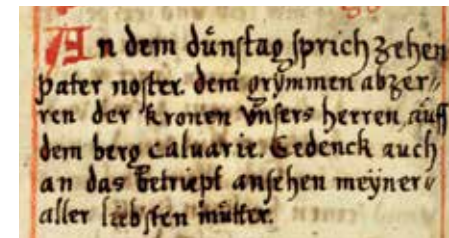 An dem dünstag sprich zehen
pater noster. dem grymmen abzer⸗
ren der kronen vnsers herren, auff
dem berg caluarie. Gedenck auch
an das betriept ansehen meyner⸗
aller liebsten mutter.